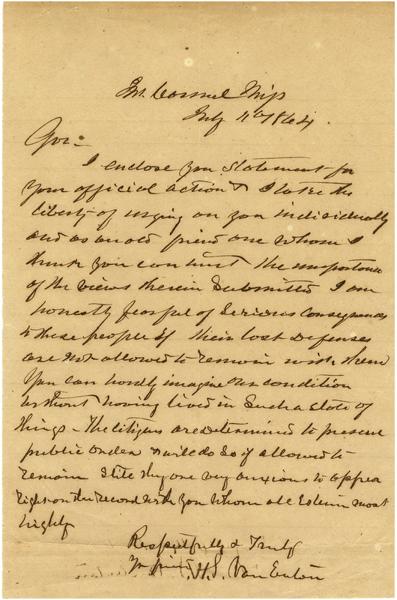 Mt Carmel Miss
July 11th 1864
Gov:
I enclose you statement for
your official action & I take the
liberty of urging on you individually
and as an old friend one whom I
think you can trust the importance
of the views therein submitted I am
honestly fearful of serious consequences
to these people if their lost defenses
are not allowed to remain with them
You can hardly imagine our condition
without having lived in such a state of
things - The citizens are determined to preserve
public order & will do so if allowed to
remain & they are very anxious to appear
right on the record with you whom all esteem most
highly
Respectfully & Truly
Yr friend H.S. Van Eaton